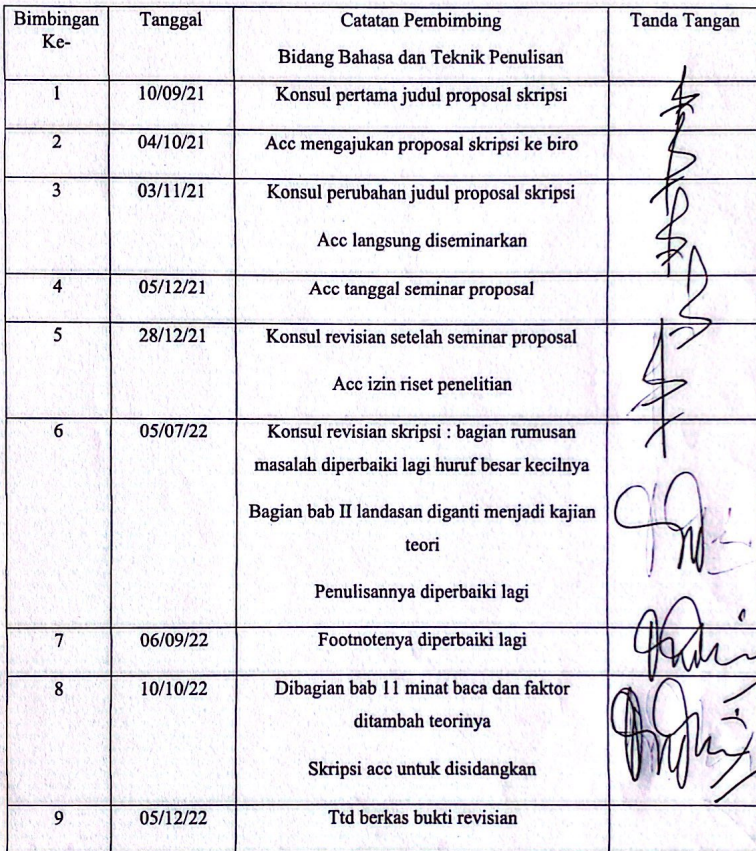 Bimbingan Ke-
Tanggal
Catatan Pembimbing
Bidang Bahasa dan Teknik Penulisan
Tanda Tangan
1
10/09/21
Konsul pertama judul proposal skripsi
2
04/10/21
Acc mengajukan proposal skripsi ke biro
3
03/11/21
Konsul perubahan judul proposal skripsi
Acc langsung diseminarkan
4
05/12/21
Acc tanggal seminar proposal
5
28/12/21
Konsul revisian setelah seminar proposal
Acc izin riset penelitian
6
05/07/22
Konsul revisian skripsi : bagian rumusan
masalah diperbaiki lagi huruf besar kecilnya
Bagian bab II landasan diganti menjadi kajian
teori
Penulisannya diperbaiki lagi
7
06/09/22
Footnotenya diperbaiki lagi
8
10/10/22
Dibagian bab 11 minat baca dan faktor
ditambah teorinya
Skripsi acc untuk disidangkan
9
05/12/22
Ttd berkas bukti revisian